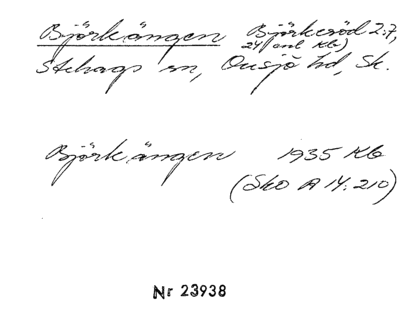 Björkängen Björkeröd 2:7,
24 enl Kb)
Stehags sn, Onsjö hd, Sk.
Björkängen 1935 Kb
(Sko A 14:210)
Nr 23938